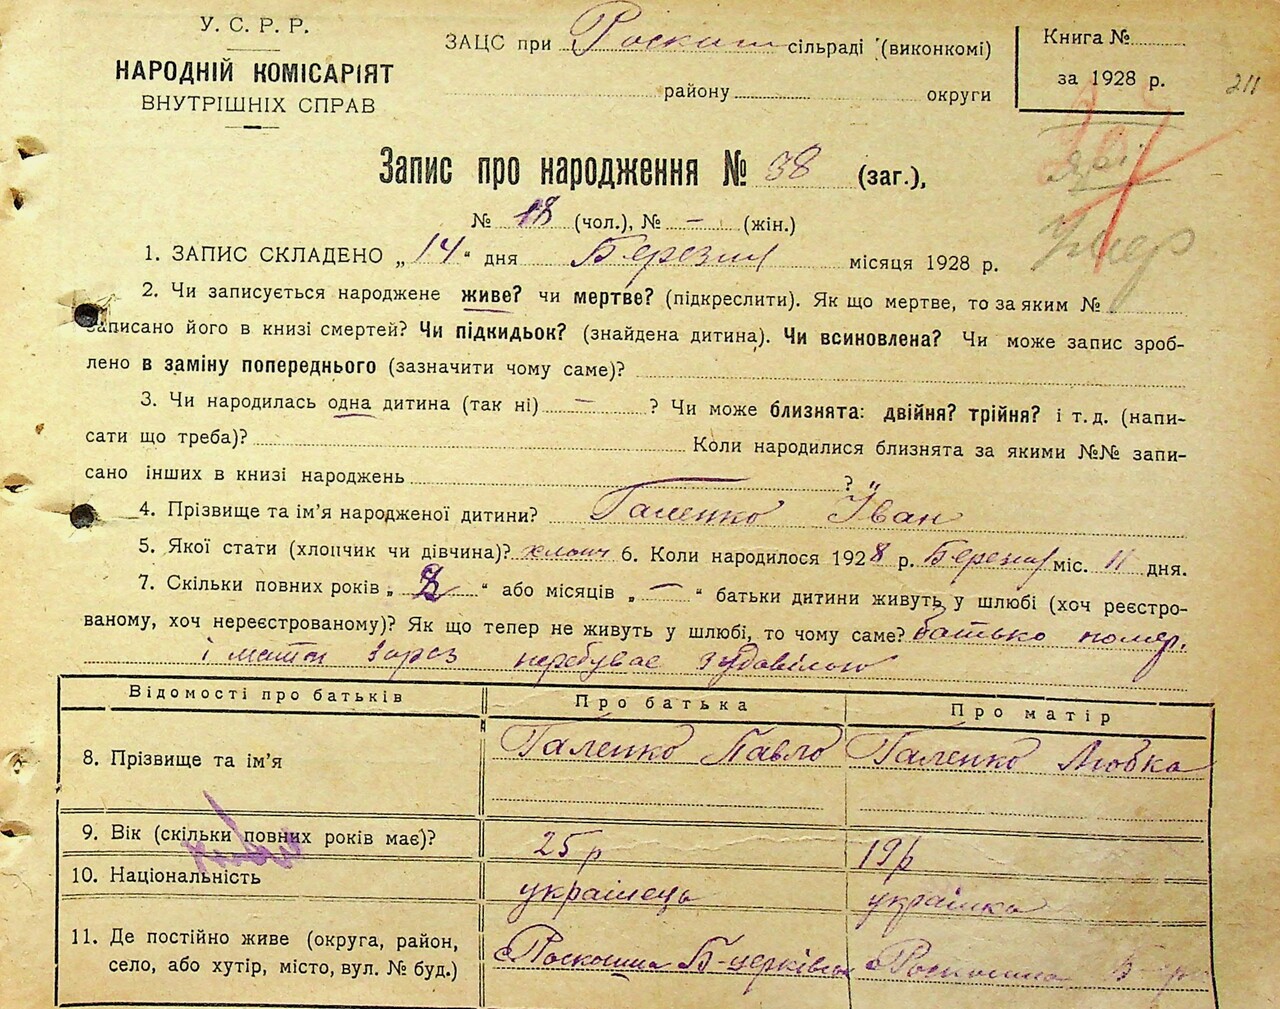 У. С. Р. Р.
НАРОДНІЙ КОМІСАРІЯТ
ВНУТРІШНІХ СПРАВ
ЗАЦС при Роскош сільраді (виконкомі)
району округи
Книга №
за 1928 р.
211
Запис про народження № 38 (заг.),
№ 18 (чол.), № — (жін.)
Умер
1. ЗАПИС СКЛАДЕНО „14" дня Березня місяця 1928 р.
2. Чи записується народжене живе? чи мертве? (підкреслити). Як що мертве, то за яким №
записано його в книзі смертей? Чи підкидьок? (знайдена дитина). Чи всиновлена? Чи може запис зроб-
лено в заміну попереднього (зазначити чому саме)?
3. Чи народилась одна дитина (так ні) — ? Чи може близнята: двійня? трійня? і т. д. (напи-
сати що треба)? Коли народилися близнята за якими №№ запи-
сано інших в книзі народжень ?
4. Прізвище та ім'я народженої дитини? Галенко Іван
5. Якої стати (хлопчик чи дівчина)? хлопч 6. Коли народилося 1928 р. Березня міс. 11 дня.
7. Скільки повних років „2" або місяців „—" батьки дитини живуть у шлюбі (хоч реєстро-
ваному, хоч нереєстрованому)? Як що тепер не живуть у шлюбі, то чому саме? батько помер.
і мати зараз перебуває вдовілою
Відомості про батьків Про батька Про матір
8. Прізвище та ім'я Галенко Павло Галенко Любка
9. Вік (скільки повних років має)? 25 р 19 р
10. Національність українець українка
11. Де постійно живе (округа, район, с Роскошна Б-церківськ с Роскошна
село, або хутір, місто, вул. № буд.)